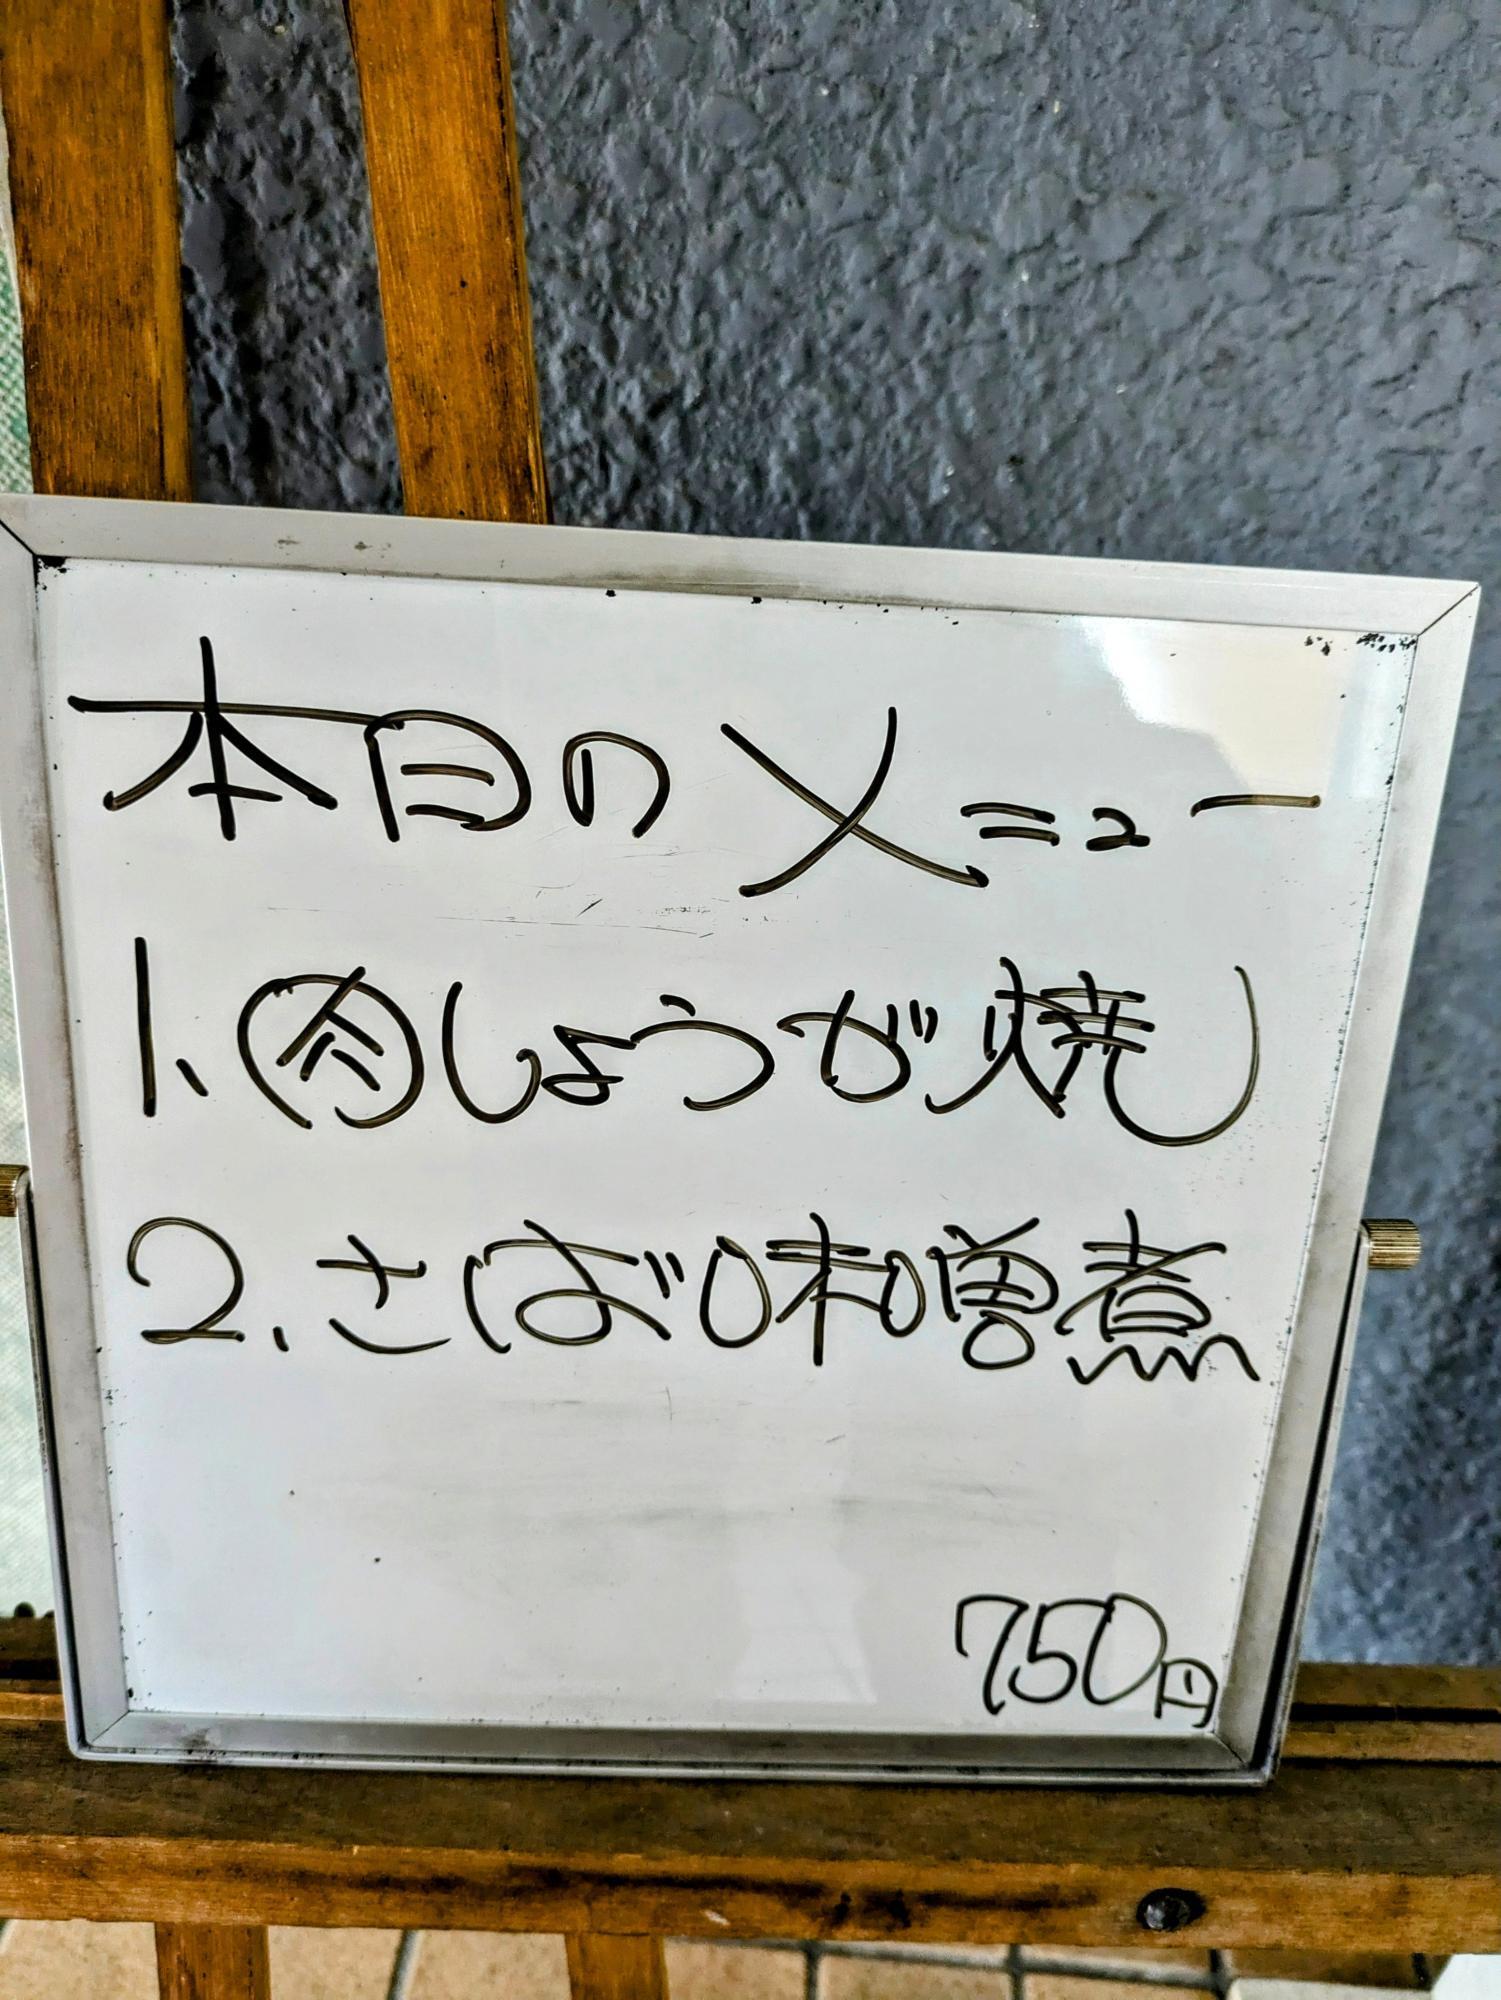 本日のメニュー
1、肉しょうが焼し
2.さば味噌煮
750円